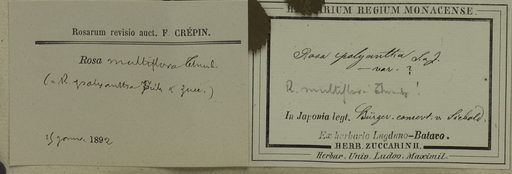 Rosarum revisio auct. F. CRÉPIN.
Rosa multiflora Thunb.
(= R. polyantha Sieb. & Zucc.)
15 janv. 1892
HERBARIUM REGIUM MONACENSE.
Rosa polyantha S. Z.
— var. ?
R. multiflora Thunb.!
In Japonia legt. Bürger. comert. v. Siebold.
Ex herbario Lugduno-Batavo.
HERB. ZUCCARINII.
Herbar. Univ. Ludov. Maximil.